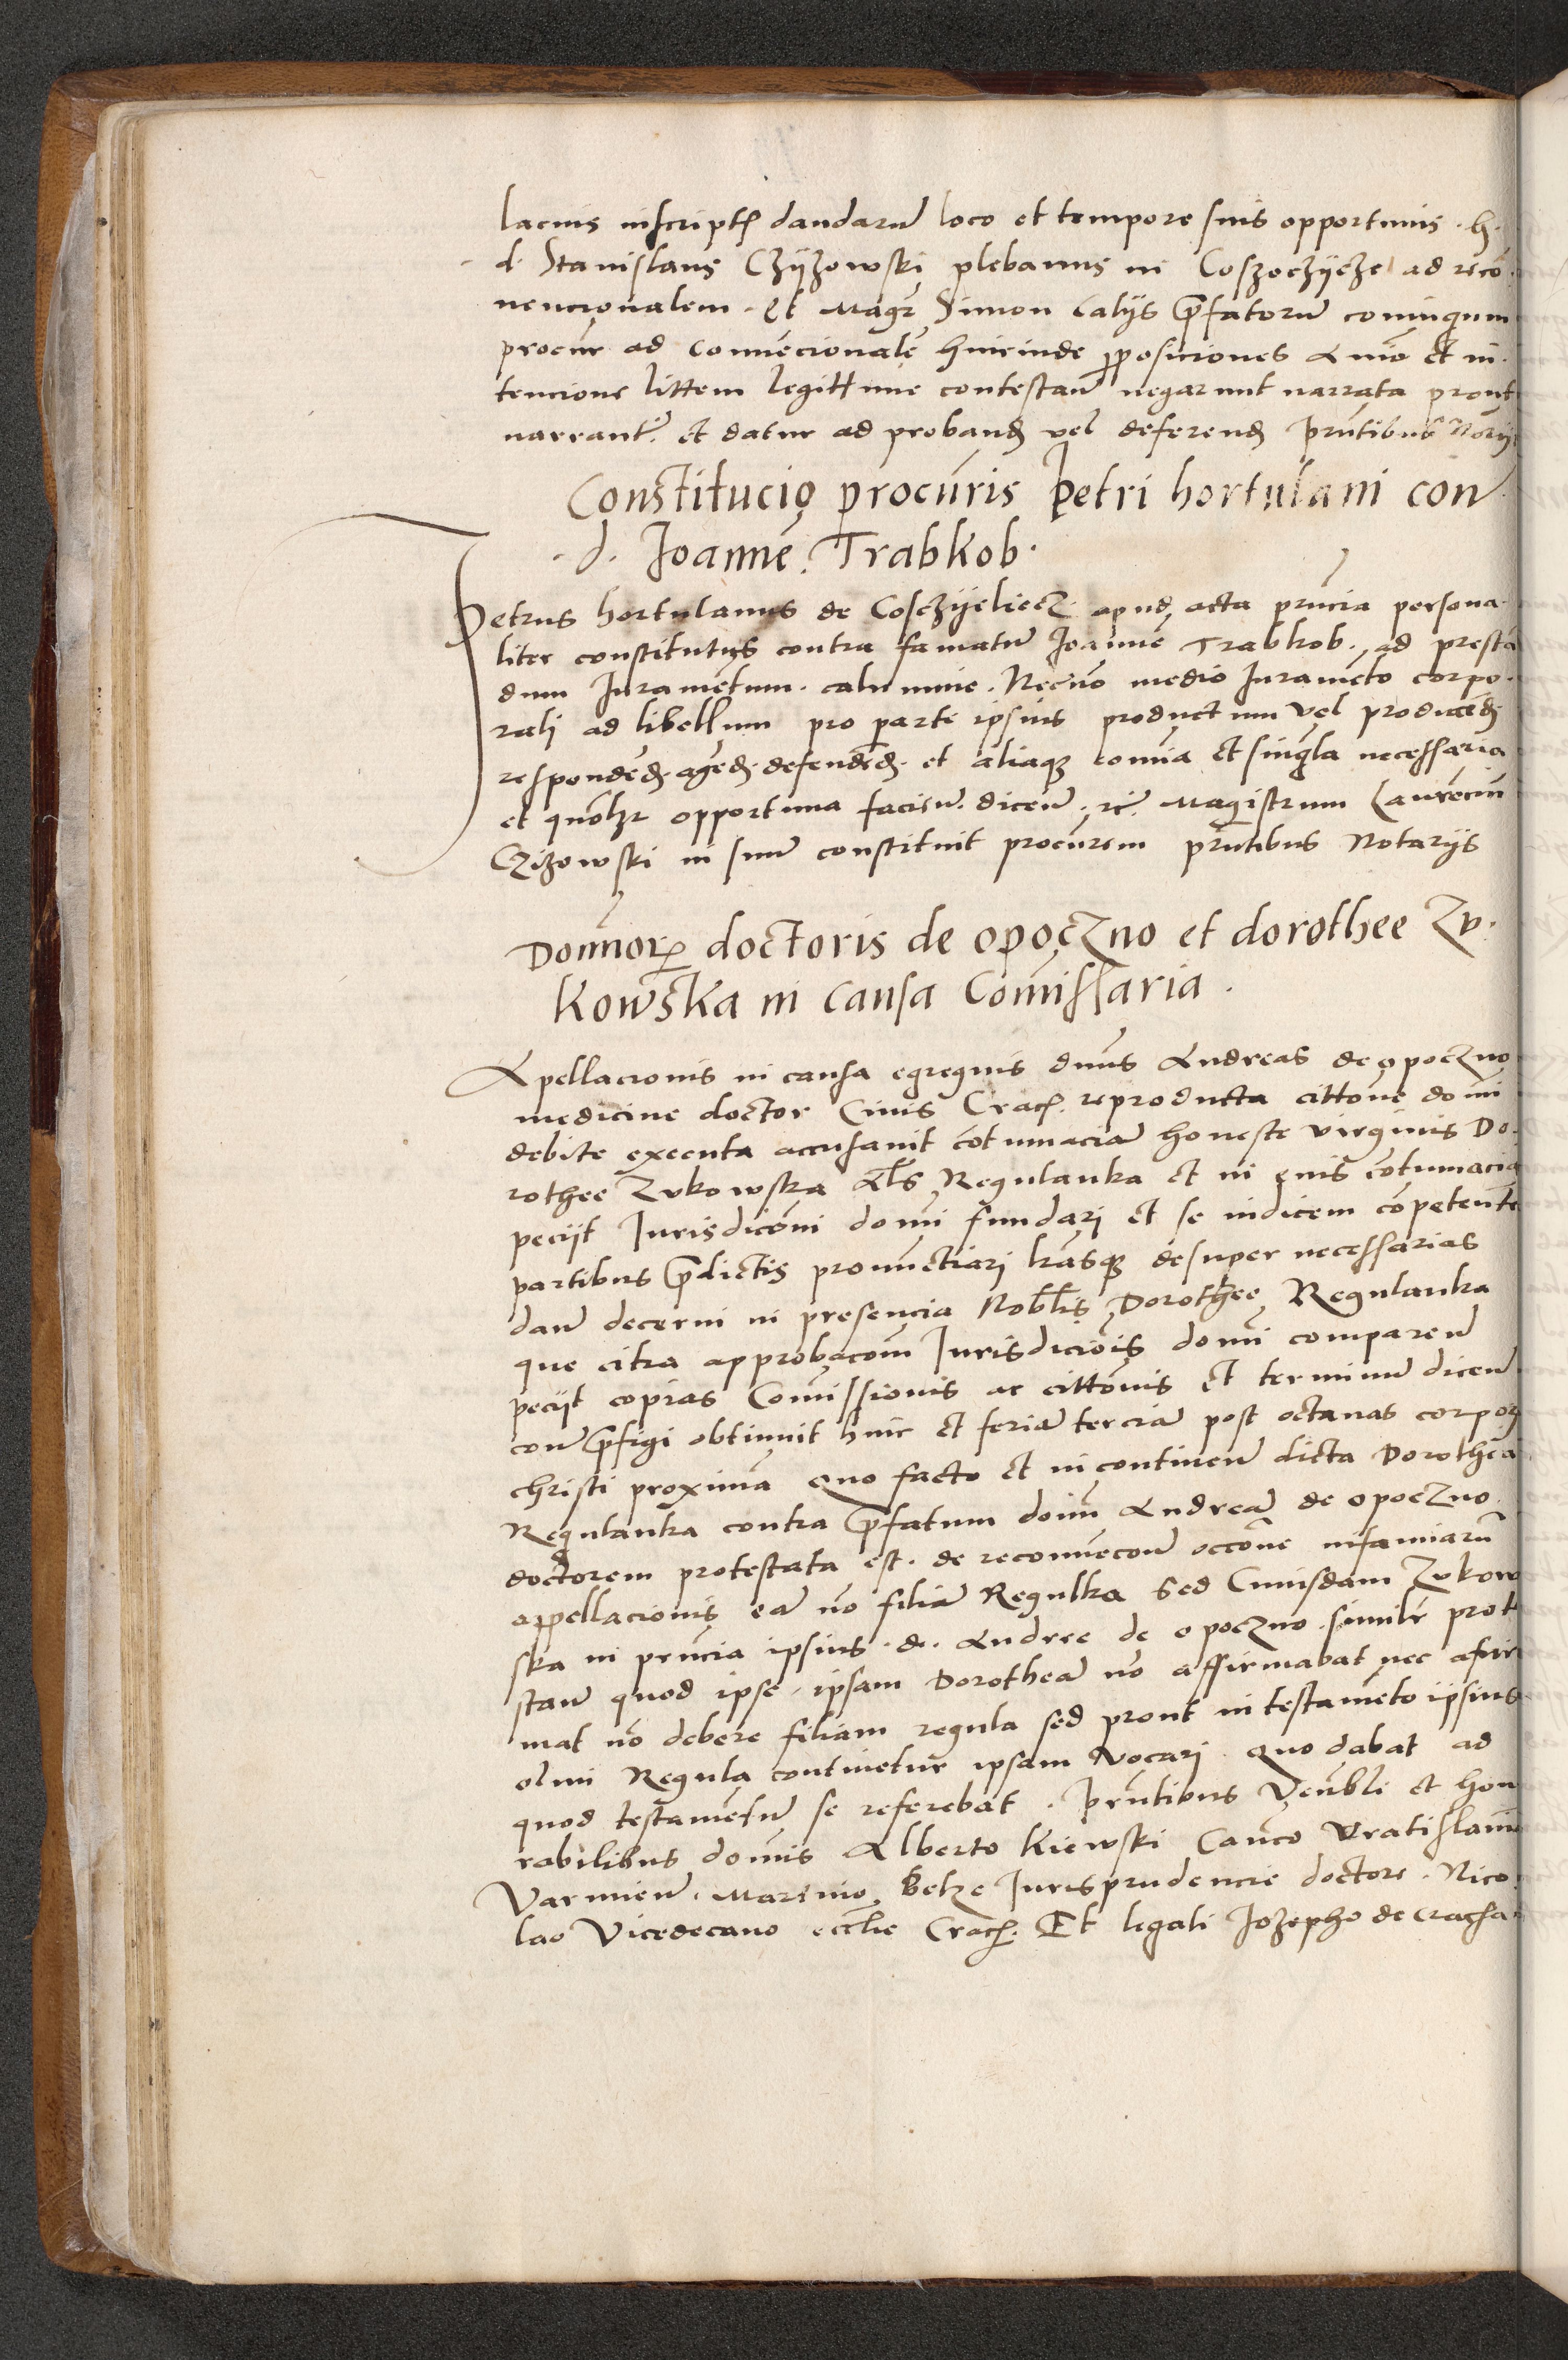 lacius inscriptꝭ dandarū loco et tempore suis opportunis . h.
d. Stanislaus Czÿzowski plebanus in Coszoczÿcze ad recō
nencionalem . Et Magr Simon Calÿs p̄fatorū coniugum
procur ad Connēcionalē hincinde ꝓposiciones animo et in
tencione littem legittime contestan̄ negarunt narrata prout
narrant̄. et datur ad proband vel deferend p̄ntibus Notarÿs
Constitucio procūris petri hortulani con
d. Joannē Trabkob.
Petrus hortulanus de Cosczÿeliecz apud acta pn̄cia persona
liter constitutus contra famatū Joannē Trabkob . ad prestā
dum Iuramētum . calumnie . Necnō medio Iuramēto corpo
rali ad libellum pro parte ipsius productum vel producēd
respondēd. agēd. defendēd. et aliaqꝫ omnia et singula necessaria
et quōlꝫ opportuna facien̄. dicen̄. rc̄. Magistrum Laurēciū
Czizowski in suū constituit procūrem pn̄tibus Notarÿs
Domnorꝝ doctoris de opoczno et dorothee Zu
kowska in causa Comissaria .
Apellacionis in causa egregius dnūs Andreas de opoczno
medicine doctor Ciuis Cracꝭ. reproducta cittone domi
debite executa accusauit cōtumaciā honeste virginis Do
rothee Zukowska als Regulanka et in eius cōtumaciā
peciit Iurisdicōni domi fundari et se iudicem cōpetente
partibus p̄dictis pronunctiari lrāsqꝫ desuper necessarias
dan̄ decerni in presencia Nobilis Dorothee Regulanka
que citra approbacōm Iurisdiciōis domi comparen̄
peciit copias Comissionis ac cittōnis et terminū dicen̄
con̄ p̄figi obtinuit huic et feriā terciā post octauas corporis
christi proximā quo facto et in continen̄ dicta Dorothea
Regulanka contra p̄fatum doim̄ Andreā de opoczno
doctorem protestata est . de reconuēcon̄ occōne infamiarū
appellacionis eā nō filiā Regulka Sed Cuiusdam Zukow
ska in pn̄cia ipsius . d. Andree de opoczno . similr̄ prote
stan̄ quod ipse . ipsam Dorotheā nō affirmabat nec afir
mat nō debere filiam regula sed prout in testamēto ipsius
olim Regula continetur ipsam vocari . quo dabat ad
quod testamētū se referebat . pn̄tibus Venbli et hon
rabilibus domis Alberto Kiewski Canco Vratislauie
Varmien̄ . Martino Belze Iurisprudencie doctore . Nico
lao Vicedecano ecclie Cracꝭ. Et legali Jozepho de Cracha